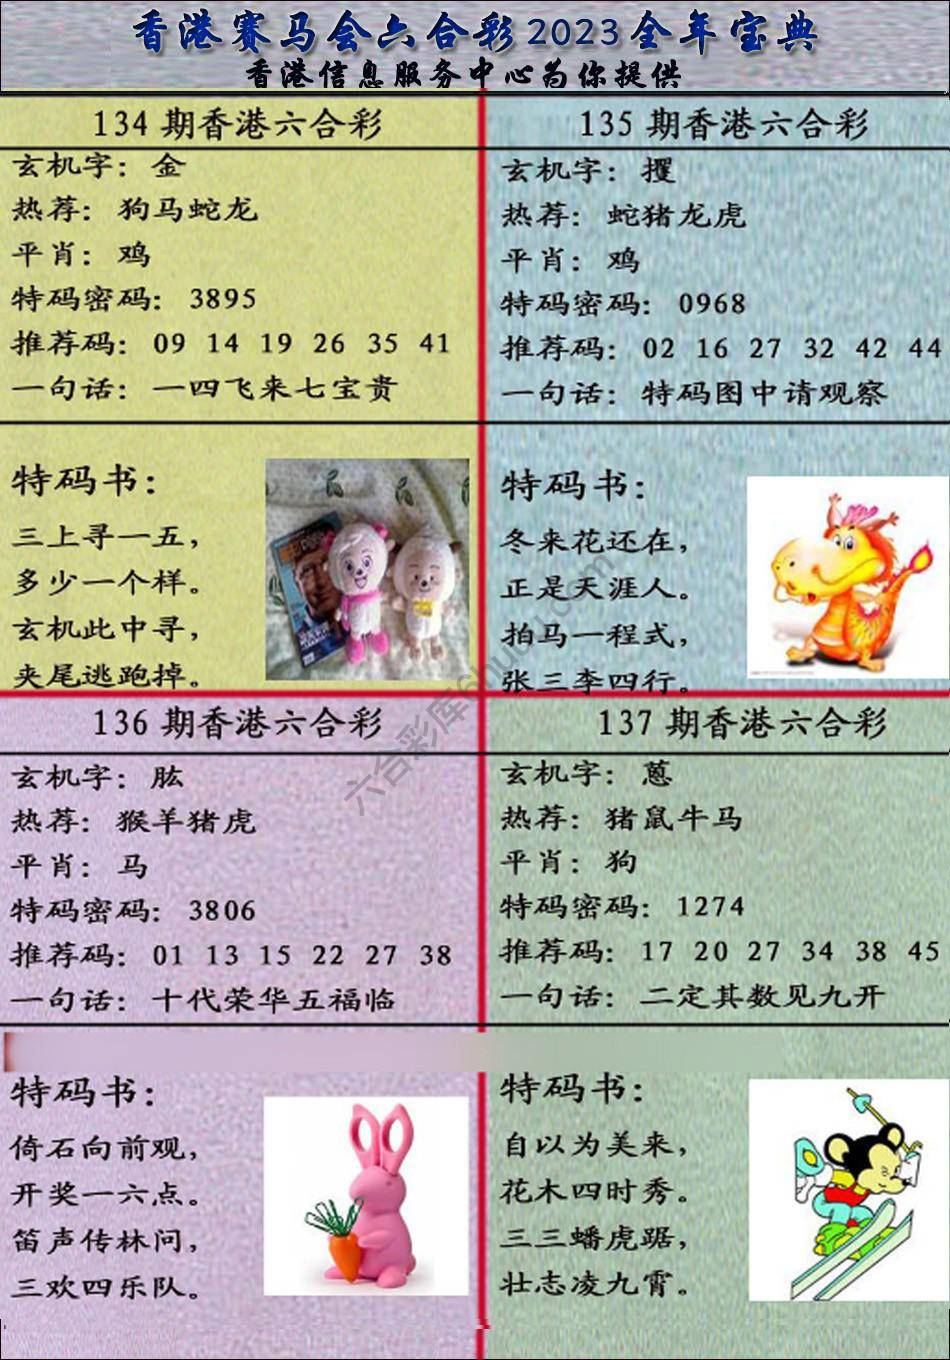 香港赛马会六合彩2023全年宝典
香港信息服务中心为你提供
134期香港六合彩
玄机字：金
热荐：狗马蛇龙
平肖：鸡
特码密码：3895
推荐码：09 14 19 26 35 41
一句话：一四飞来七宝贵
特码书：
三上寻一五，
多少一个样。
玄机此中寻，
夹尾逃跑掉。
135期香港六合彩
玄机字：撄
热荐：蛇猪龙虎
平肖：鸡
特码密码：0968
推荐码：02 16 27 32 42 44
一句话：特码图中请观察
特码书：
冬来花还在，
正是天涯人。
拍马一程式，
张三李四行。
136期香港六合彩
玄机字：肱
热荐：猴羊猪虎
平肖：马
特码密码：3806
推荐码：01 13 15 22 27 38
一句话：十代荣华五福临
特码书：
倚石向前观，
开奖一六点。
笛声传林问，
三欢四乐队。
137期香港六合彩
玄机字：蔥
热荐：猪鼠牛马
平肖：狗
特码密码：1274
推荐码：17 20 27 34 38 45
一句话：二定其数见九开
特码书：
自以为美来，
花木四时秀。
三三蟠虎踞，
壮志凌九霄。